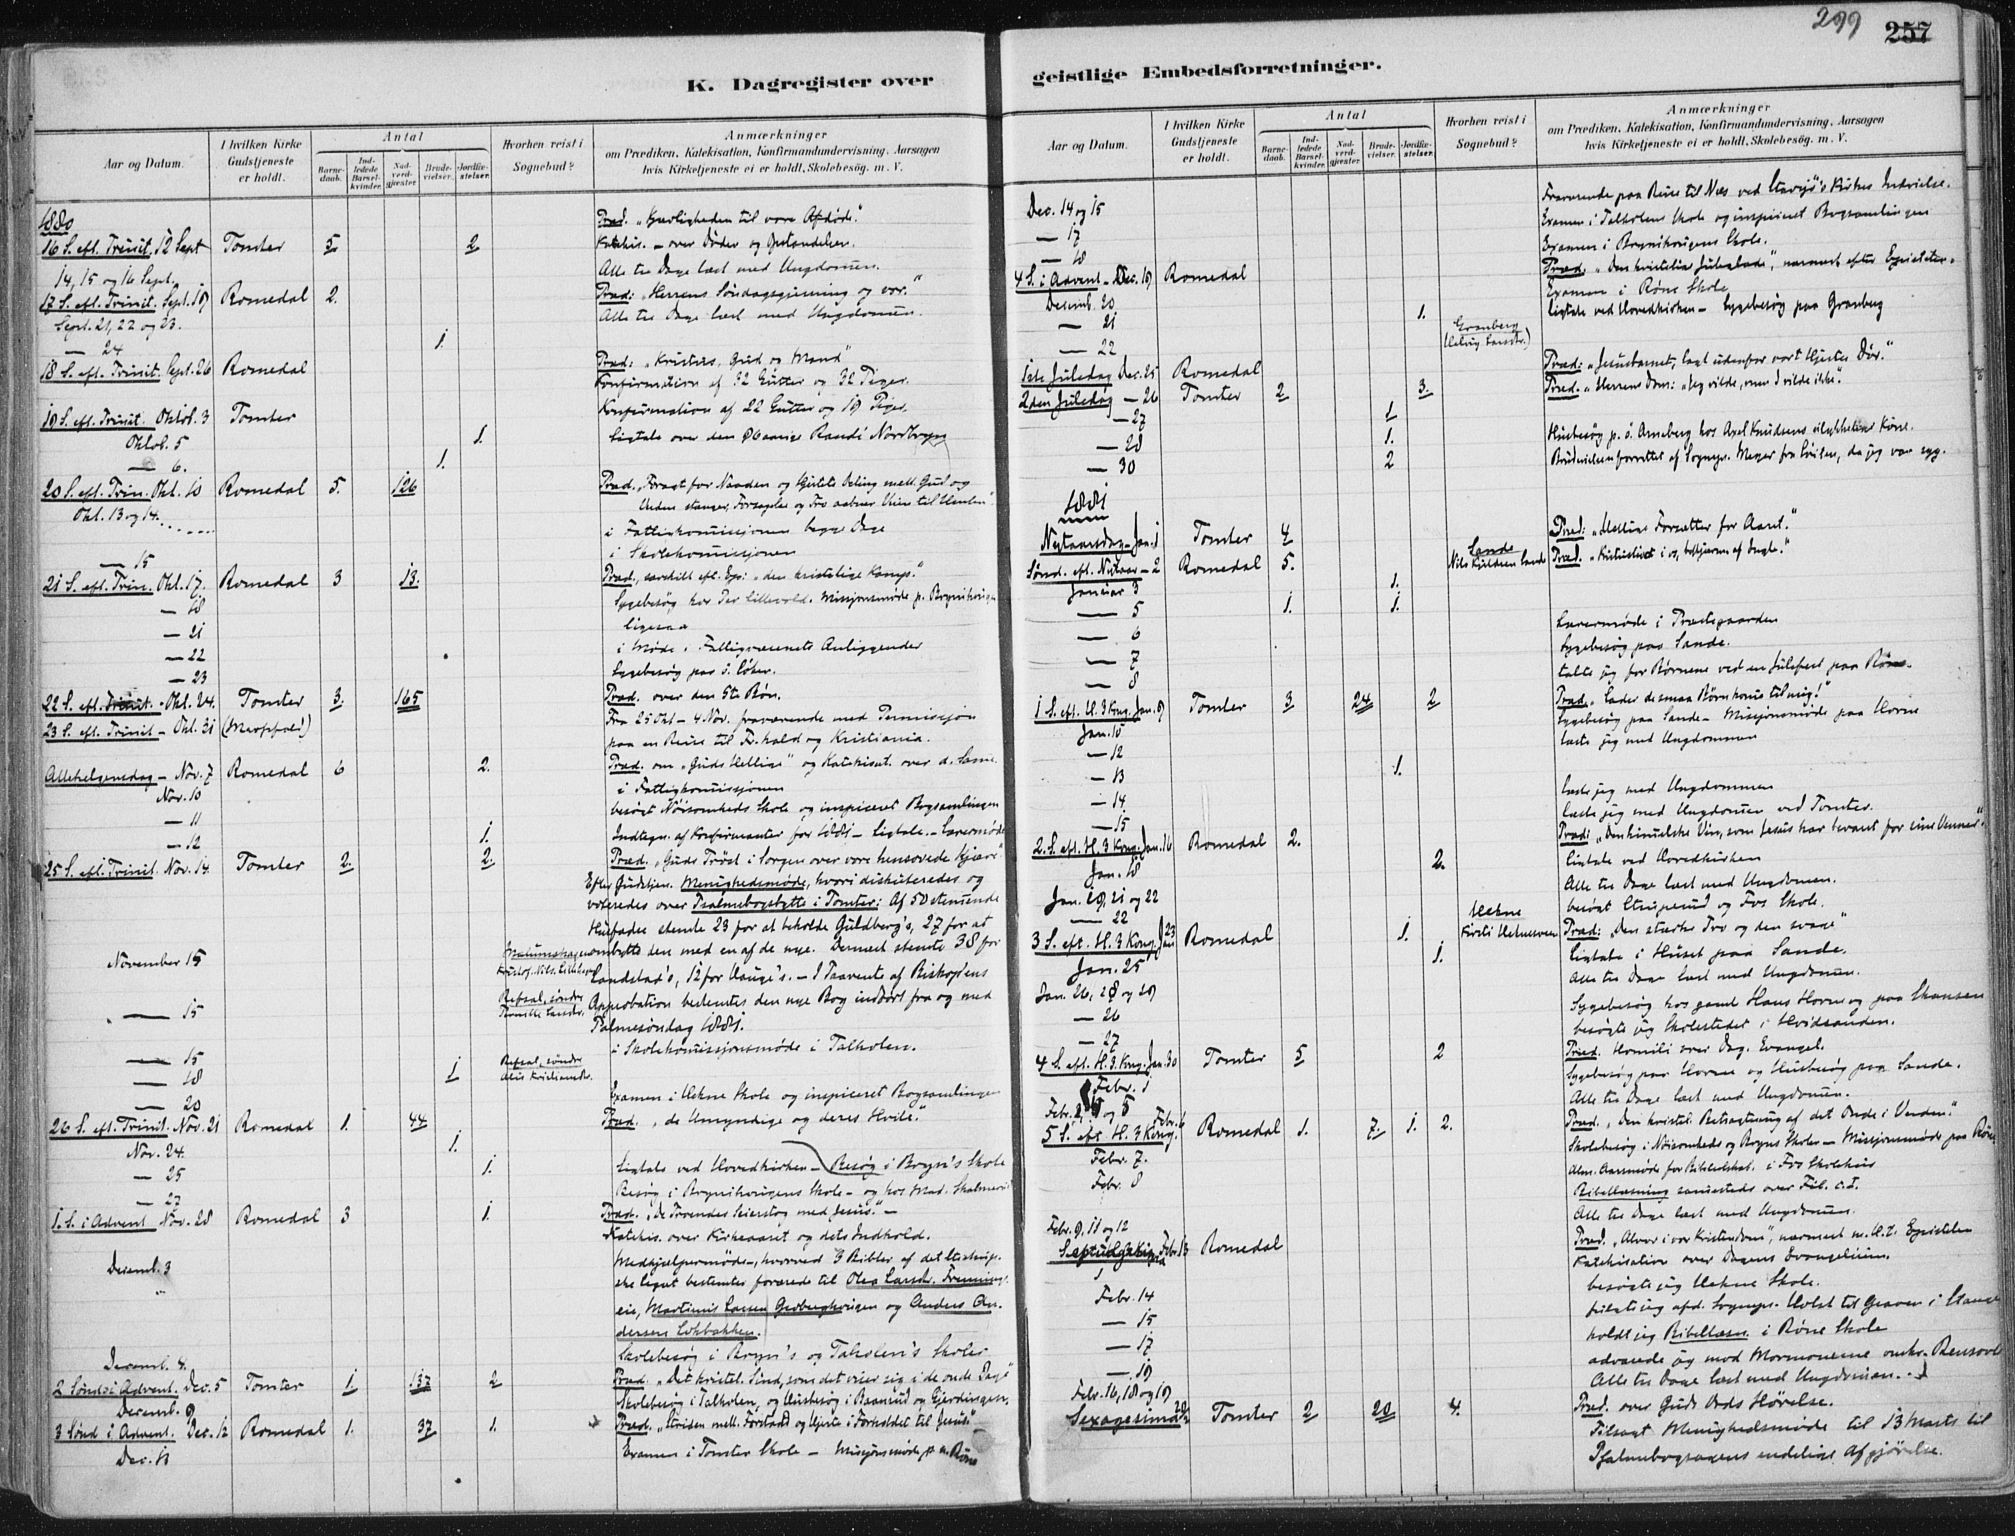 299
257
K. Dagregister over
Aar og Datum.
I hvilken Kirke Gudstjeneste er holdt.
Antal
Barne-daab.
Ind-ledede Barsel-kvinder.
Nad-verd-gjæster
Brude-vielser.
Jordfæ-stelser.
Hvorhen reist i Sognebud?
Anmærkninger
om Prædiken, Katekisation, Konfirmandundervisning, Aarsagen
hvis Kirketjeneste ei er holdt, Skolebesøg. m. V.
1880
Præd. „Kjærligheden til vore Afdøde."
16 S. eft. Trinit. 12 Sept Tomter 5 2 Katekis. – over Døden og Opstandelsen.
14, 15 og 16 Sept. Alle tre Dage læst med Ungdommen.
17 S. eft. Trinit. Sept. 19 Romedal 2. Præd: „Herrens Søndagsgjerning og vor."
Sept. 21, 22 og 23. Alle tre Dage læst med Ungdommen.
— 24 1.
18 S. eft. Trinit. Sept. 26 Romedal Præd: „Kristus, Gud og Mand"
Konfirmation af 32 Gutter og 32 Piger.
19 S. eft. Trinit. Oktob. 3 Tomter Konfirmation af 22 Gutter og 19 Piger.
Oktob. 5 1. Ligtale over den 86 aarige Randi Nordbryn
— 6. 1.
20 S. eft. Trin. Okt. 10 Romedal 5. 126 Præd. „Foragt for Naaden og Hjertets Deling mell. Gud og
Verden stænger, Forsagelse og Tro aabner Veien til Himlen"
Okt. 13 og 14. i Fattigkommissjonen begge Dage
— 15 i Skolekommissjonen
21 S. eft. Trin. Okt. 17. Romedal 3 13. Præd., særskilt eft. Ep.: „den kristelige Kamp."
— 18 Sygebesøg hos Per Lillevold. Missjonsmøde p. Brynikrigen
— 21 ligesaa
— 22 i Møde i Fattigvæsenets Anliggender
— 23 Sygebesøg paa
22 S. eft. Trinit. - Okt. 24. Tomter 3. 165 Præd. over den 5te Bøn.
23 S. eft. Trinit – Okt. 31 Fra 25 Okt – 4 Nov. fraværende med Permissjon
paa en Reise til Fr.hald og Kristiania.
Allehelgensdag – Nov. 7 Romedal 6 2. Præd. om „Guds Hellige" og Katekisat. over d. Samme
Nov. 10 i Fattigkommissjonen
— 11 besøgt Nøisomheds Skole og inspiceret Bogsamlingen
— 12 1. Indtegn. af Konfirmanter for 1881 – Ligtale. – Lærermøde
25 S. eft. Trinit. Nov. 14. Tomter 2. 2. Præd. „Guds Trøst i Sorgen over vore hensovede Kjære"
Efter Gudstjen. Menighedsmøde, hvori diskuteredes og
voteredes over Psalmebogsbytte i Tomter: Af 50 stemmende
Husfædre stemte 23 for at beholde Guldberg's, 27 for at
ombytte den med en af de nye. Dernæst stemte 38 for
November 15 Landstad's, 12 for Hauge's. – I Paavente af Biskopens
— 15 Refsal, søndre Approbation bestemtes den nye Bog indført fra og med
Palmesøndag 1881.
— 15 Refsal, søndre i Skolekommissjonsmøde i Talholen.
— 18 1
— 20 Examen i Hekne Skole og inspiceret Bogsamlingen
26 S. eft. Trinit. Nov. 21 Romedal 1. 44 Præd. „de Umyndige og deres Hvile."
Nov. 24. 1.
— 25 1. Ligtale ved Hovedkirken – Besøg i Bryn's Skole
— 27 Besøg i Brynikrigens Skole – og hos Mad.
1. S. i Advent Nov. 28 Romedal 3 1. Præd. „De Troendes Seierstog med Jesus." –
Katekis. over Kirkeaaret og dets Indhold.
Decemb. 3 Medhjælpermøde, hvorved 3 Bibler af det
ske legat bestemtes forærede til Olea Larsd.
eie, Martinus Larsen og Anders An-
dersen
Decemb. 4. Skolebesøg i Bryn's og Talholen's Skoler
2 Sønd. i Advent. Dec. 5 Tomter 1 137 2 Præd. „Det kristel. Sind, som det viser sig i de onde Dage"
Decemb. 9 Skolebesøg i Talholen, og Husbesøg i Baanrud og Gjerdingen.
3 Sønd i Advent. Dec. 12 Romedal 1. 37 1. Præd. „Striden mell. Forstand og Hjerte i Forholdet til Jesus."
Dec. 11 Examen i Tomter Skole – Missjonsmøde p. n. Røne
geistlige Embedsforretninger.
Aar og Datum.
I hvilken Kirke Gudstjeneste er holdt.
Antal
Barne-daab.
Ind-ledede Barsel-kvinder.
Nad-verd-gjæster
Brude-vielser.
Jordfæ-stelser.
Hvorhen reist i Sognebud?
Anmærkninger
om Prædiken, Katekisation, Konfirmandundervisning, Aarsagen
hvis Kirketjeneste ei er holdt, Skolebesøg. m. V.
Dec. 14 og 15 Fraværende paa Reise til Næs ved Stavsjø's Kirkes Indvielse.
— 17 Examen i Talholens Skole og inspiceret Bogsamlingen
— 18 Examen i Brynikrigens Skole.
4 S. i Advent – Dec. 19 Romedal Præd. „Den kristelige Juleglæde", nærmest efter Epistelen.
Decemb. 20 Examen i Røne Skole
— 21 1. Ligtale ved Hovedkirken – Sygebesøg paa Granberg
— 22 Granberg
1ste Juledag Dec. 25 Romedal Præd: „Jesusbarnet, lagt udenfor vort Hjertes Dør."
2den Juledag – 26 Tomter 2 3. Præd. „Herrens Dom: „Jeg vilde, men I vilde ikke".
— 27 1
— 28 1. Husbesøg p. ö. Arneberg hos Axel Knudsens
— 30 2 Brudevielsen forrettet af Sognepr. Meyer fra Løiten, da jeg var syg.
1881
Nytaarsdag – Jan. 1 Tomter 4 Præd: „Hellige Forsætter for Aaret."
Sønd. eft. Nytaar – 2 Romedal 5. Sande Præd.
Januar 3 1.
— 5 1. 1.
— 6 Lærermøde i Præstegaarden
— 7 Sygebesøg paa Sande.
— 8 talte jeg for Børnene ved en Julefest paa Røne.
1 S. eft. H. 3 Kong. Jan. 9 Tomter 3 24 2 Præd. „Lader de smaa Børn komme til mig!"
Jan. 10 Sygebesøg paa Sande – Missjonsmøde paa Horne
— 12 læste jeg med Ungdommen
— 13 1.
— 14. læste jeg med Ungdommen
— 15 læste jeg med Ungdommen ved Tomter.
2. S. eft. H. 3 Kong. Jan. 16 Romedal 2. Præd: „Den himmelske Vin, som Jesus har bevaret for sine Venner".
Jan. 18 2. Ligtale ved Hovedkirken
Jan. 20, 21 og 22 Alle tre Dage læst med Ungdommen.
— 22 besøgt Stuperud og Fos Skole.
3 S. eft. H. 3 Kong. Jan 23 Romedal 1. Hekne Præd: „Den stærke Tro og den svage"
Jan. 25 1. Ligtale i Huset paa Sande.
Jan. 26, 28 og 29 Alle tre Dage læst med Ungdommen.
— 26 Sygebesøg hos gaml Hans Horne og paa Skansen
— 27 besøgte jeg Skolestedet i Hvidsanden.
4 S. eft. H. 3 Kong. Jan. 30 Tomter 5 2 Præd. Homili over Dag. Evangel.
Febr. 1 Sygebesøg paa Horne og Husbesøg paa Sande.
Febr. 2, 4 og 5 Alle tre Dage læst med Ungdommen.
5 S. eft. H. 3 Kong. Febr. 6 Romedal 1. 7. 1. 2. Præd. „Den kristel. Betragtning af det Onde i Verden."
Febr. 7. Skolebesøg i Nøisomheds og Bryns Skoler – Missjonsmøde paa Røne
Febr. 8 Alm. Aarsmøde for Bibelselskab. i Fos Skolehus
Bibellæsning sammesteds over Fil. c. I.
Febr. 9, 11 og 12 Alle tre Dage læst med Ungdommen.
Septuagesima Febr. 13 Romedal Præd. „Alvor i vor Kristendom", nærmest m. H. t. Epistelen
Katekisation over Dagens Evangelium.
Febr. 14 besøgte jeg Hekne Skole.
— 15 fulgte jeg afd. Sognepr. Holst til Graven i Stange
— 17 holdt jeg Bibellæsn. i Røne Skole
— 19 advarede jeg mod Mormonerne
Febr. 16, 18 og 19 Alle tre Dage læst med Ungdommen.
Sexagesima 20 Tomter 2 20 4. Præd. over Guds Ords Hørelse.
Tilsagt Menighedsmøde til 13 Marts til
Psalmebogsagens endelige Afgjørelse.